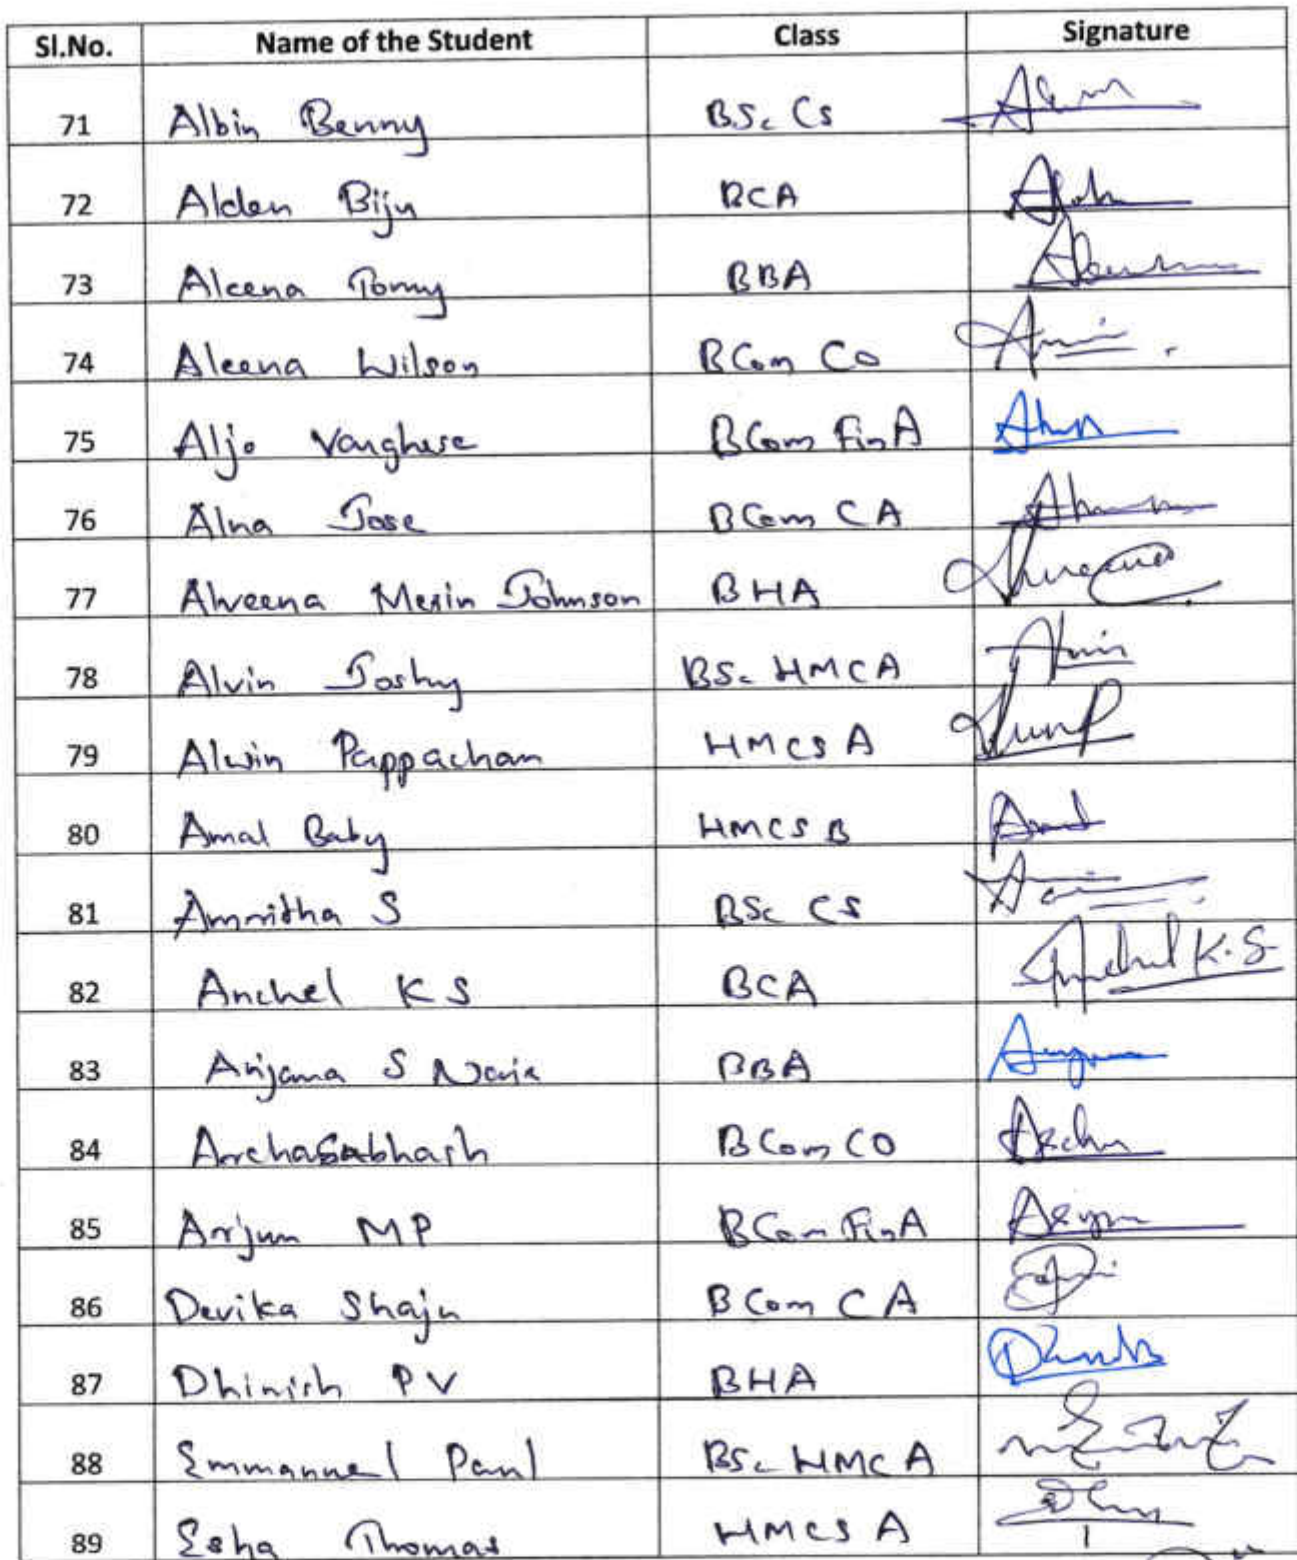 Sl.No. Name of the Student Class Signature
71 Albin Benny BSc CS
72 Alden Biju BCA
73 Aleena Tomy BBA
74 Aleena Wilson BCom CO
75 Aljo Varghese BCom Fin A
76 Alna Jose BCom CA
77 Alveena Merin Johnson BHA
78 Alvin Joshy BSc HMCA
79 Alwin Pappachan HMCS A
80 Amal Baby HMCS B
81 Amritha S BSc CS
82 Anchel K S BCA Anchel K.S
83 Anjana S Nair BBA
84 Archa Subhash BCom CO
85 Arjun MP BCom Fin A
86 Devika Shaju BCom CA
87 Dhinish PV BHA
88 Emmanuel Paul BSc HMC A
89 Esha Thomas HMCS A